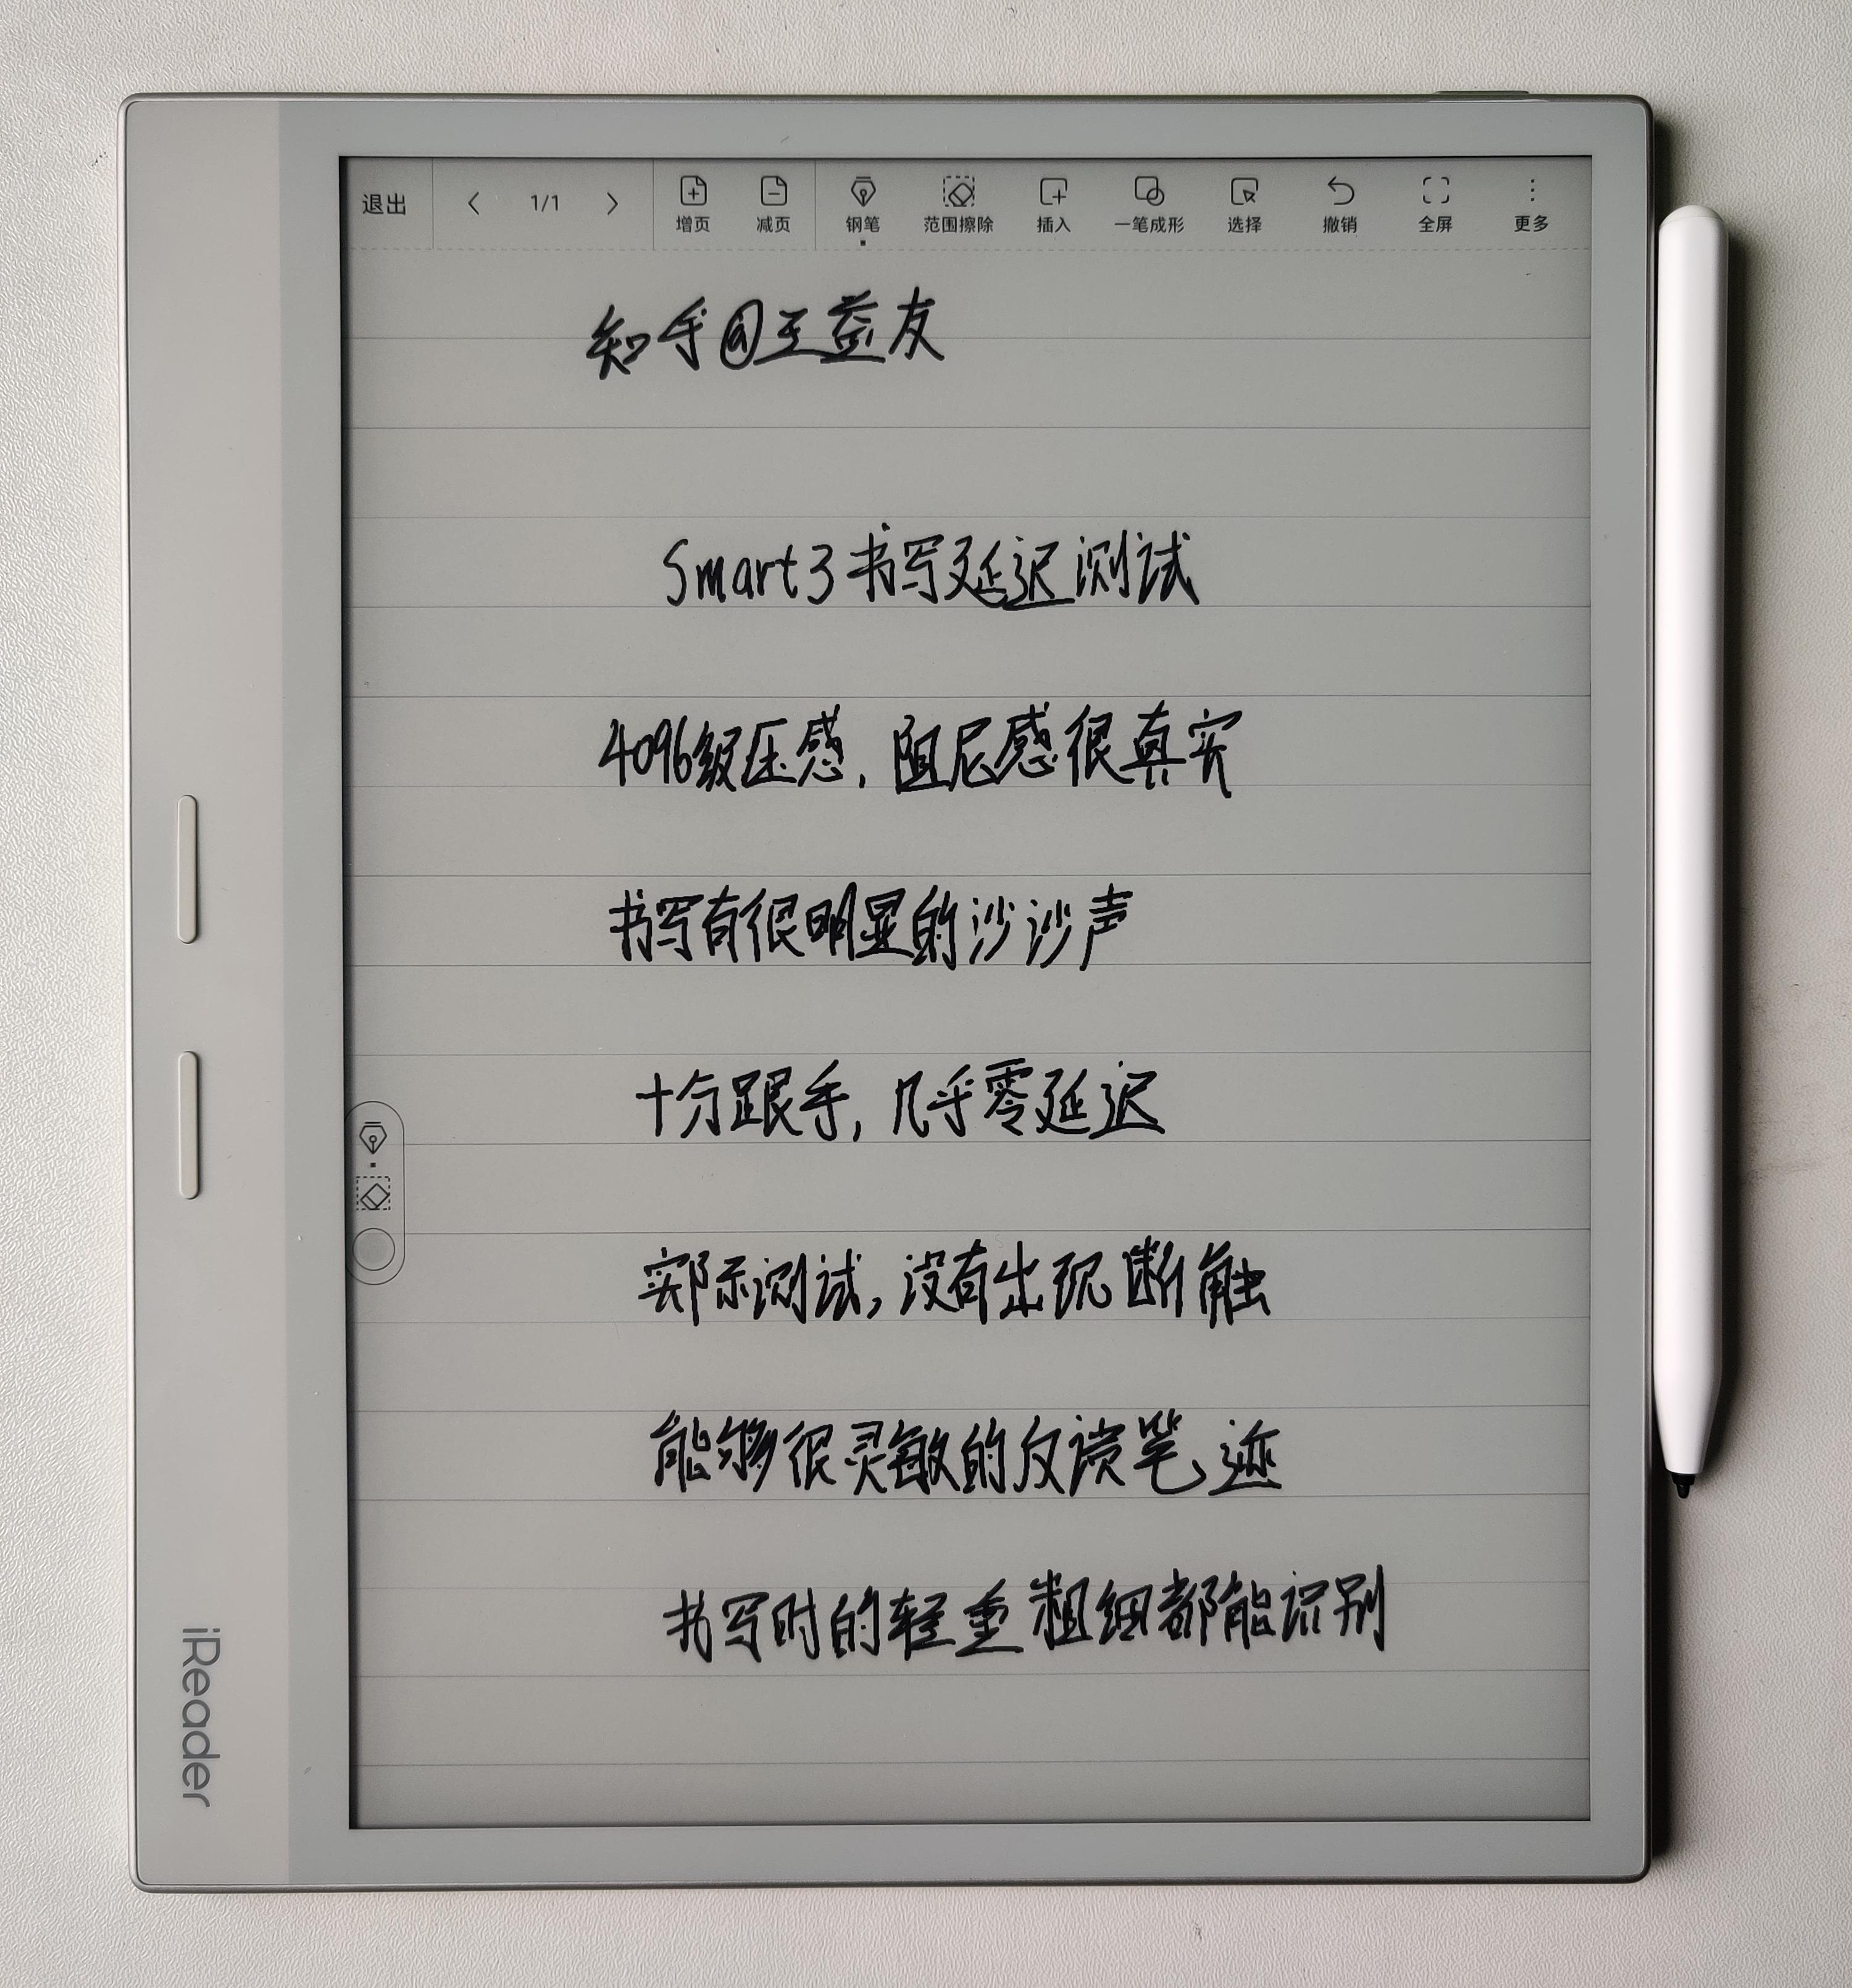 退出 1/1 增页 减页 钢笔 范围擦除 插入 一笔成形 选择 撤销 全屏 更多
知乎@王益友
Smart3书写延迟测试
4096级压感,阻尼感很真实
书写有很明显的沙沙声
十分跟手,几乎零延迟
实际测试,没有出现断触
能够很灵敏的反馈笔迹
书写时的轻重粗细都能识别
iReader